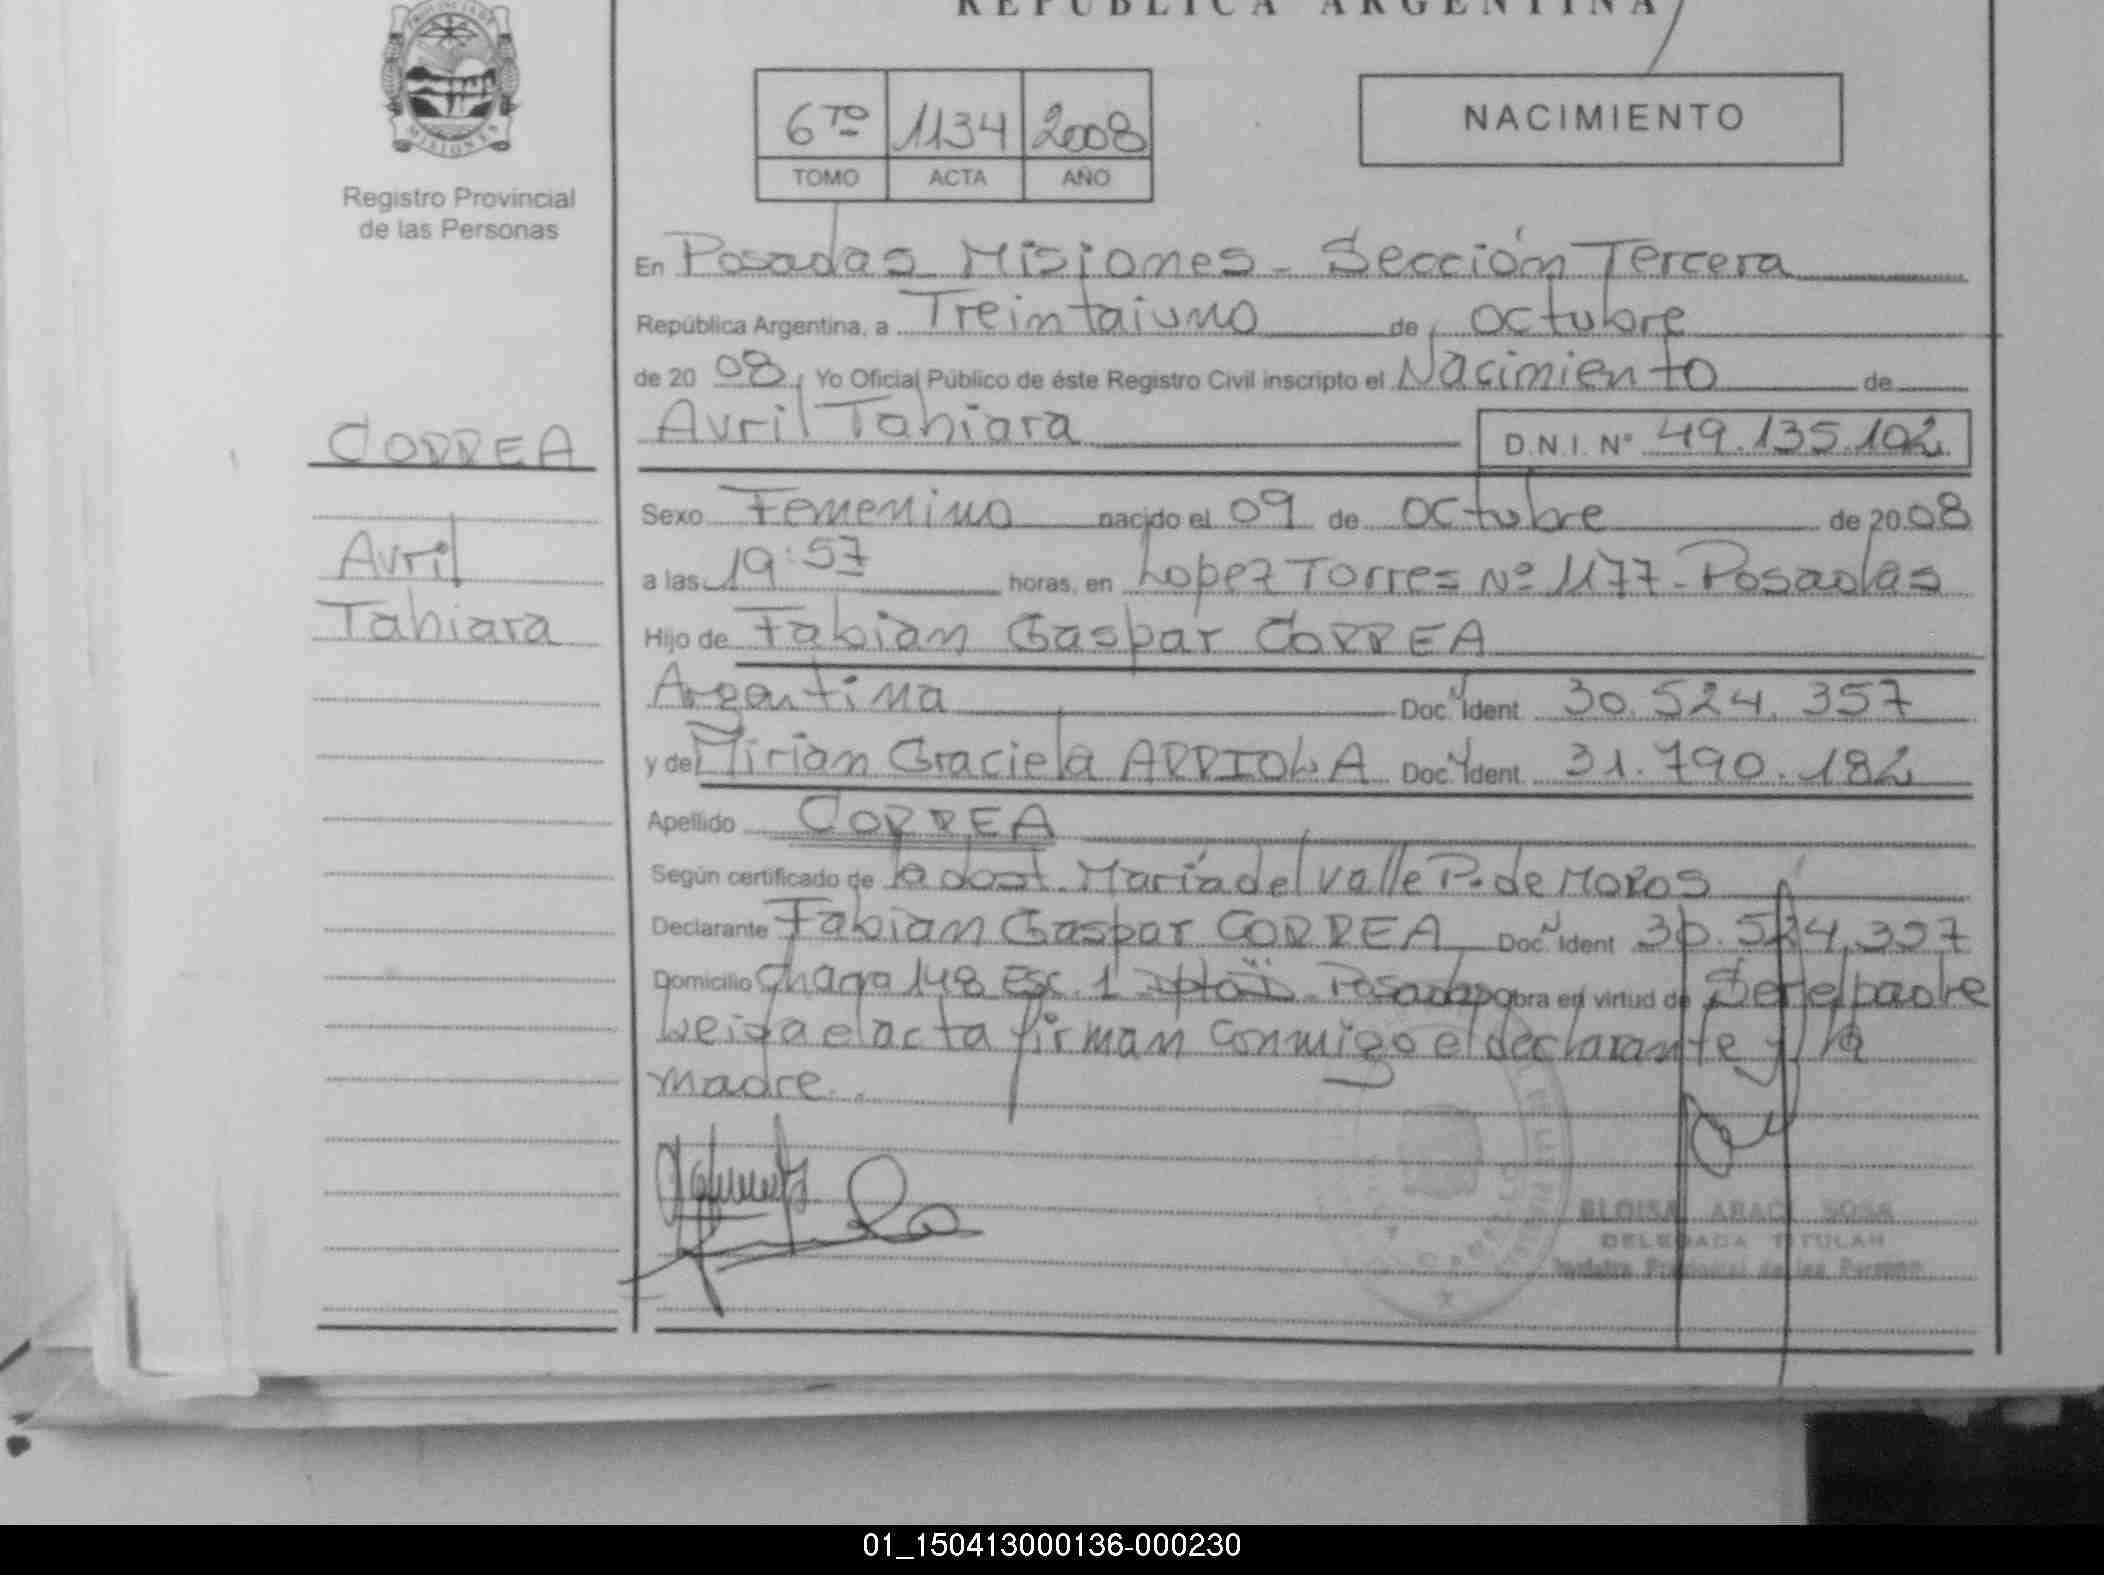 REPUBLICA ARGENTINA
PROVINCIA DE
MISIONES
Registro Provincial
de las Personas
6TO 1134 2008
TOMO ACTA AÑO
NACIMIENTO
En Posadas Misiones - Sección Tercera
República Argentina, a Treintaiuno de octubre
de 20 08, Yo Oficial Público de éste Registro Civil inscripto el Nacimiento de
Avril Tahiara D.N.I. Nº 49.135.102
CORREA
Avril
Tahiara
Sexo Femenino nacido el 09 de octubre de 20 08
a las 19:57 horas, en Lopez Torres Nº 1177 - Posadas
Hijo de Fabian Gaspar CORREA
Argentina Doc. Ident 30.524.357
y de Mirian Graciela ARRIOLA Doc. Ident 31.790.182
Apellido CORREA
Según certificado de la doct. María del Valle P. de MOROS
Declarante Fabian Gaspar CORREA Doc. Ident 30.524.357
Domicilio Chacra 148 Esc. 1 Posadas obra en virtud de Ser el padre
Leida el acta firman conmigo el declarante y la
madre.
ELOISA ARACI SOSA
DELEGADA TITULAR
Registro Provincial de las Personas
01_150413000136-000230